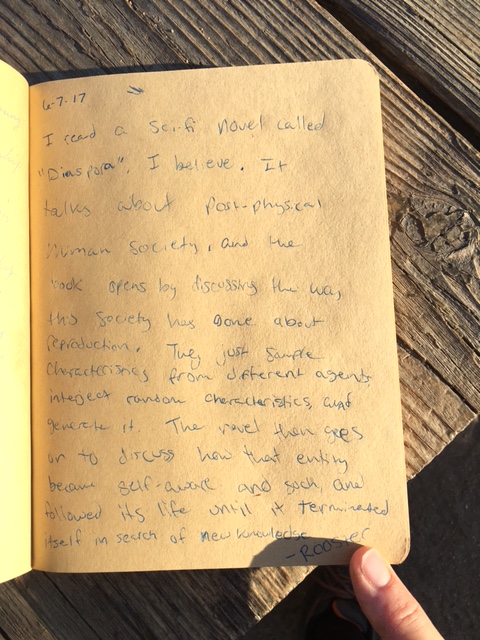 6-7-17
I read a Sci-fi novel called
"Diaspora", I believe. It
talks about post-physical
human society, and the
book opens by discussing the way
this society has gone about
reproduction. They just sample
characteristics from different agents,
interject random characteristics, and
generate it. The novel then goes
on to discuss how that entity
became self-aware and such, and
followed its life until it terminated
itself in search of new knowledge.
-Rooster